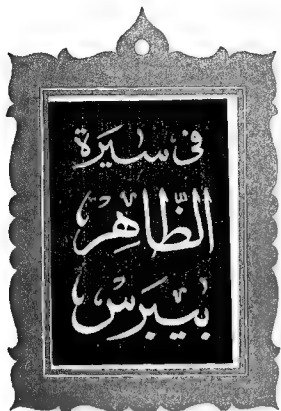 في سيرة
الظاهر
بيبرس